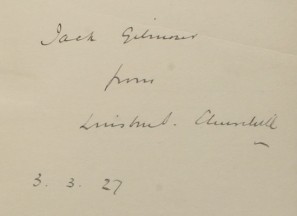 Jack Gilmour
from
Winston S. Churchill
3. 3. 27